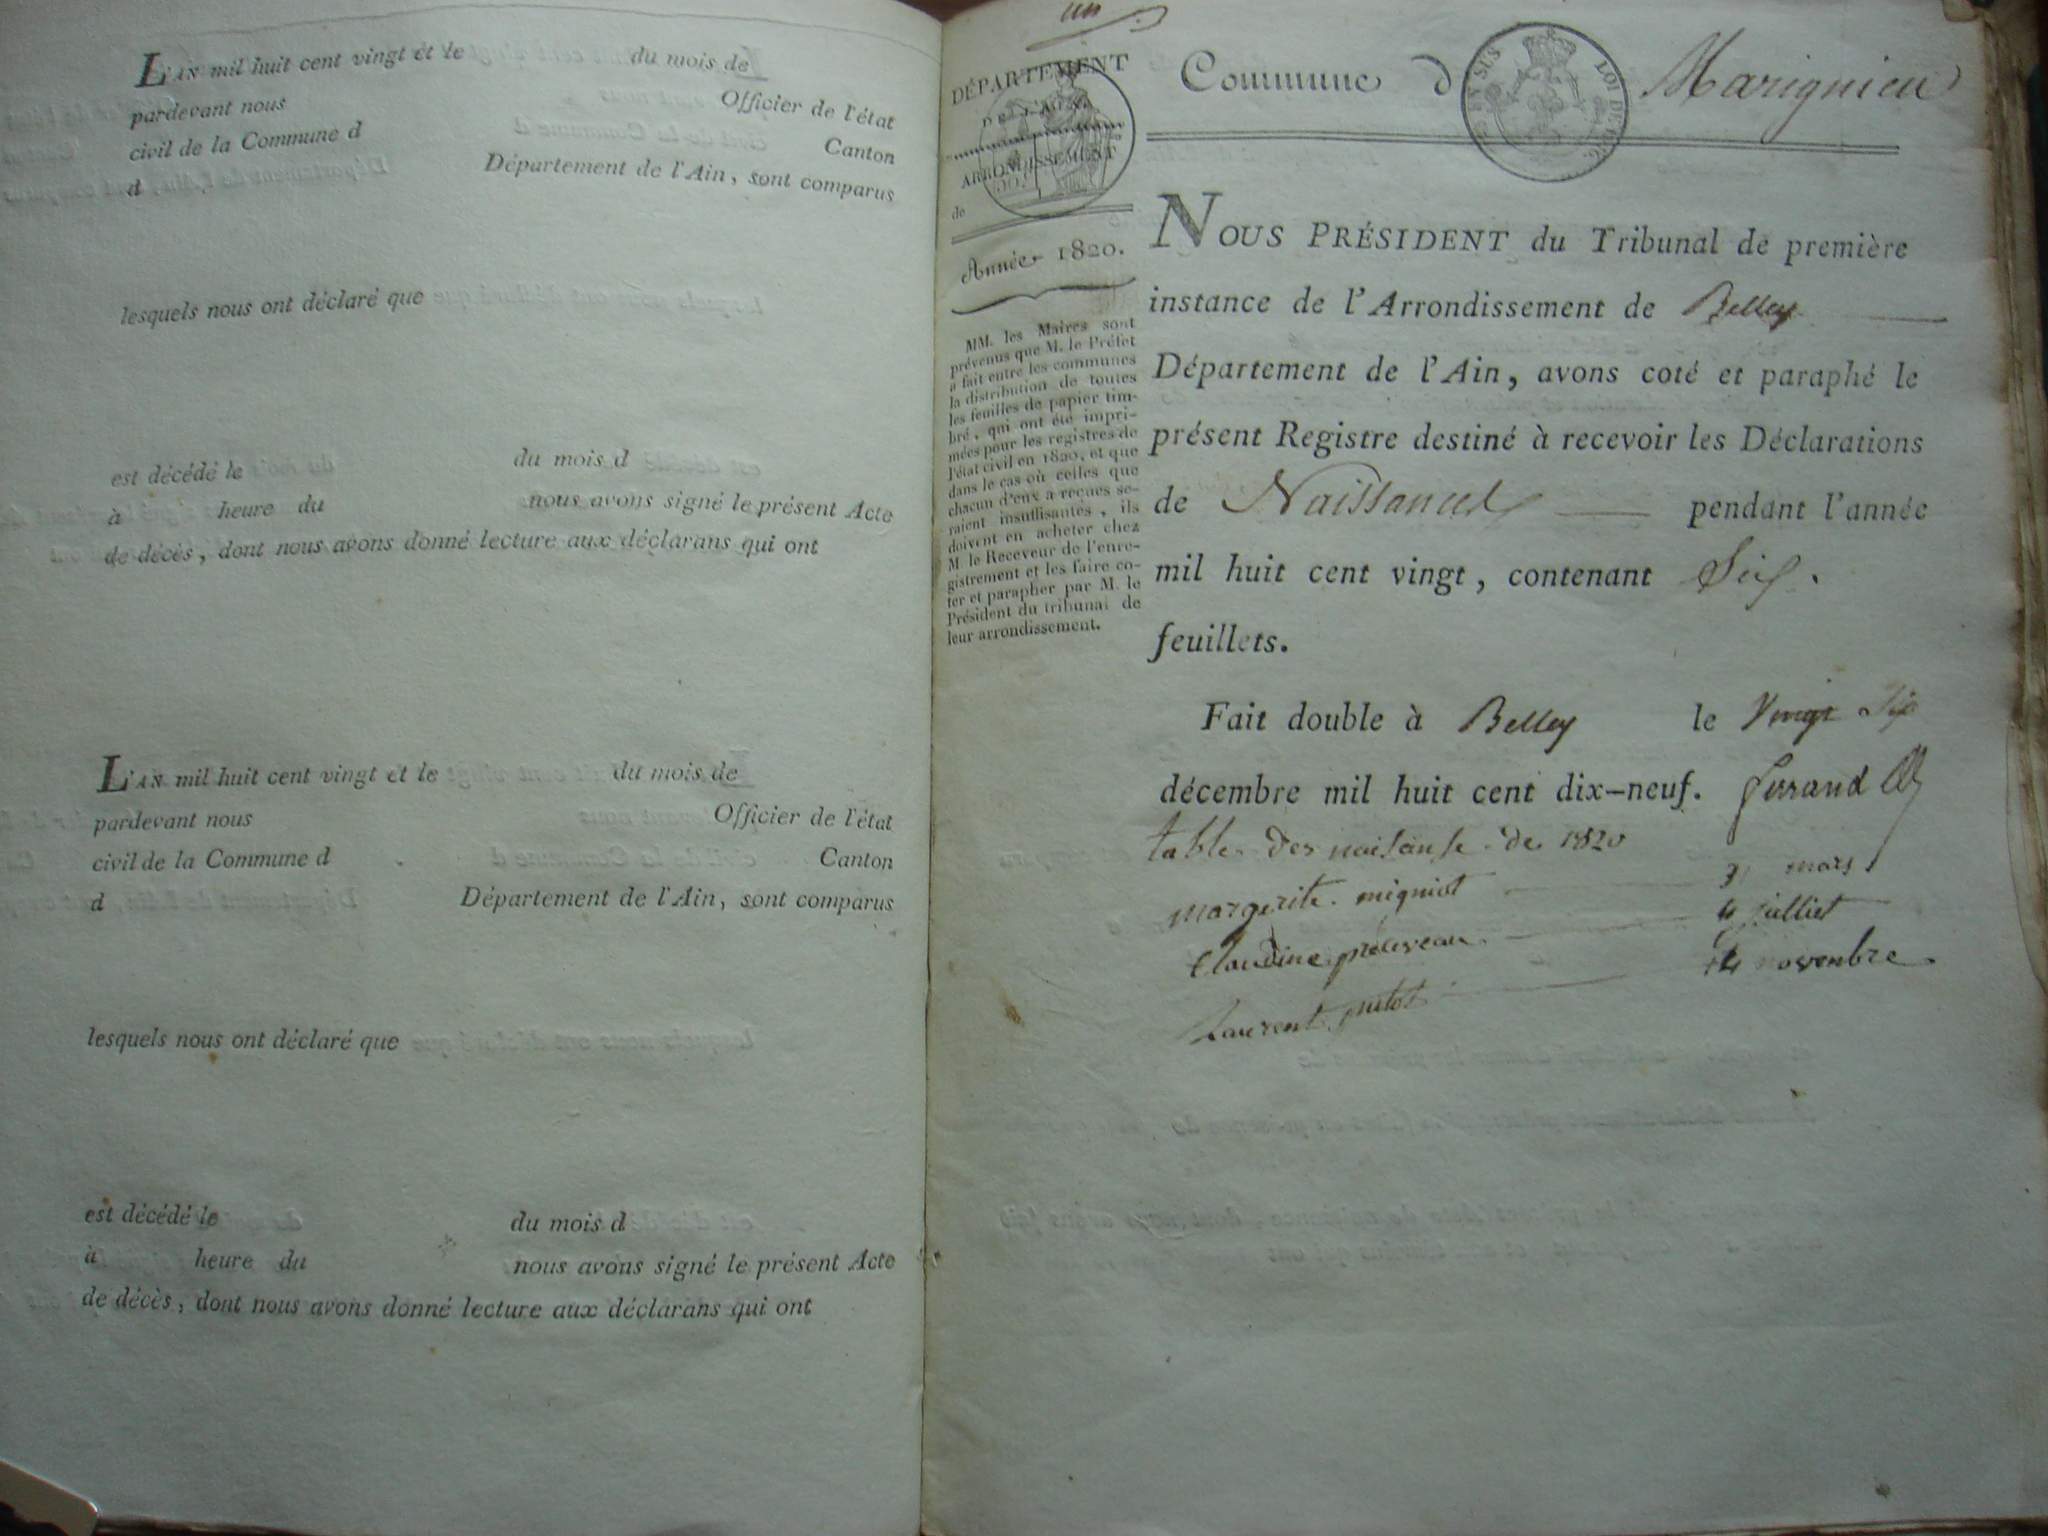 L'AN mil huit cent vingt et le du mois de
pardevant nous Officier de l'état
civil de la Commune d Canton
d Département de l'Ain, sont comparus
lesquels nous ont déclaré que
est décédé le du mois d
à heure du nous avons signé le présent Acte
de décès, dont nous avons donné lecture aux déclarans qui ont
L'AN mil huit cent vingt et le du mois de
pardevant nous Officier de l'état
civil de la Commune d Canton
d Département de l'Ain, sont comparus
lesquels nous ont déclaré que
est décédé le du mois d
à heure du nous avons signé le présent Acte
de décès, dont nous avons donné lecture aux déclarans qui ont
un
DÉPARTEMENT
DE L'AIN.
ARRONDISSEMENT
de
Année 1820.
MM. les Maires sont
prévenus que M. le Préfet
a fait entre les communes
la distribution de toutes
les feuilles de papier tim-
bré, qui ont été impri-
mées pour les registres de
l'état civil en 1820, et que
dans le cas où celles que
chacun d'eux a reçues se-
raient insuffisantes, ils
doivent en acheter chez
M. le Receveur de l'enre-
gistrement et les faire co-
ter et parapher par M. le
Président du tribunal de
leur arrondissement.
Commune d Marignieu
EN SUS LOI DE
NOUS PRÉSIDENT du Tribunal de première
instance de l'Arrondissement de Belley
Département de l'Ain, avons coté et paraphé le
présent Registre destiné à recevoir les Déclarations
de Naissances pendant l'année
mil huit cent vingt, contenant Six.
feuillets.
Fait double à Belley le Vingt Six
décembre mil huit cent dix-neuf. Ferrand
table des naisanse de 1820
margerite migniot 31 mars
Claudine 4 julliet
Laurent 14 novenbre